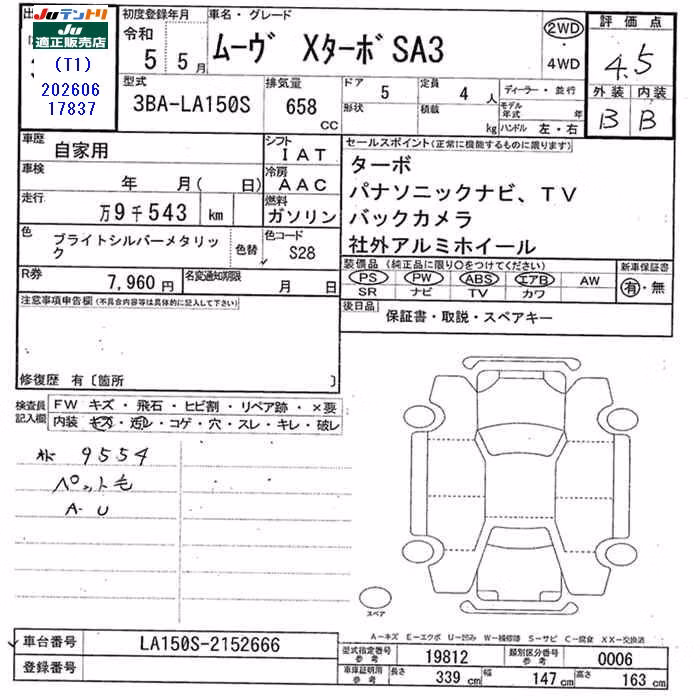 JUテントリ
JU適正販売店
(T1)
202606
17837
初度登録年月
令和
5 5月
車名・グレード
ムーヴ XターボSA3
2WD
4WD
評価点
4.5
外装 内装
B B
型式
3BA-LA150S
排気量
658
cc
ドア 5
形状
定員 4人
積載 kg
ディーラー・並行
モデル年式 年
ハンドル 左・右
車歴
自家用
シフト
IAT
車検
年 月( 日)
冷房
AAC
走行
万9千543 km
燃料
ガソリン
色
ブライトシルバーメタリック
色替
色コード
S28
R券
7,960円
名変通知期限
月 日
セールスポイント(正常に機能するものに限ります)
ターボ
パナソニックナビ、TV
バックカメラ
社外アルミホイール
装備品(純正品に限り○をつけてください)
PS PW ABS エアB AW
SR ナビ TV カワ
新車保証書
有・無
後日品
保証書・取説・スペアキー
注意事項申告欄(不具合内容等は具体的に記入して下さい)
修復歴 有〔箇所 〕
検査員記入欄
FW キズ・飛石・ヒビ割・リペア跡・×要
内装 キズ・汚レ・コゲ・穴・スレ・キレ・破レ
9554
ペット毛
A-U
スペア
A-キズ E-エクボ U-凹み W-補修跡 S-サビ C-腐食 XX-交換済
車台番号
LA150S-2152666
登録番号
型式指定番号
参考
19812
類別区分番号
参考
0006
車庫証明用
参考
長さ 339cm
幅 147cm
高さ 163cm